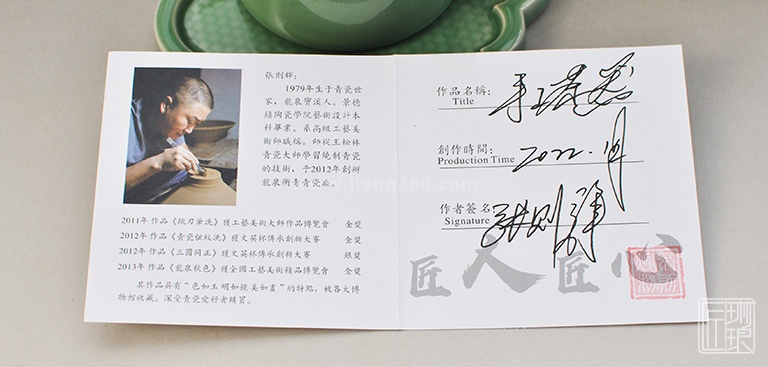 張則輝：
1979年生于青瓷世
家，龍泉寶溪人。景德
鎮陶瓷學院藝術設計本
科畢業。系高級工藝美
術師職稱。師從王松林
青瓷大師學習燒制青瓷
的技術，于2012年創辦
龍泉術青青瓷廠。
2011年 作品《跳刀筆洗》獲工藝美術大師作品博覽會 金獎
2012年 作品《青瓷弦紋洗》獲文英杯傳承創新大賽 金獎
2012年 作品《三圓同正》獲文英杯傳承創新大賽 銀獎
2013年 作品《龍泉秋色》獲全國工藝美術精品博覽會 金獎
其作品具有“色如玉 明如鏡 美如畫”的特點，被各大博
物館收藏。深受青瓷愛好者購買。
作品名稱：
Title
創作時間：
Production Time 2022.10月
作者簽名：
Signature 張則輝
匠人匠心
www.jiang360.com